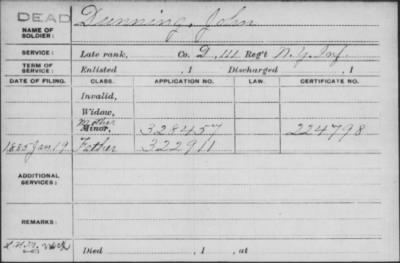 DEAD
NAME OF SOLDIER: Dunning, John
SERVICE: Late rank, Co. D, 111 Reg't N.Y. Inf.
TERM OF SERVICE: Enlisted , 1 Discharged , 1
DATE OF FILING. CLASS. APPLICATION NO. LAW. CERTIFICATE NO.
Invalid,
Widow,
Mother
Minor, 328457 224798
1885 Jan 19 Father 322911
ADDITIONAL SERVICES:
REMARKS:
Died , 1 , at